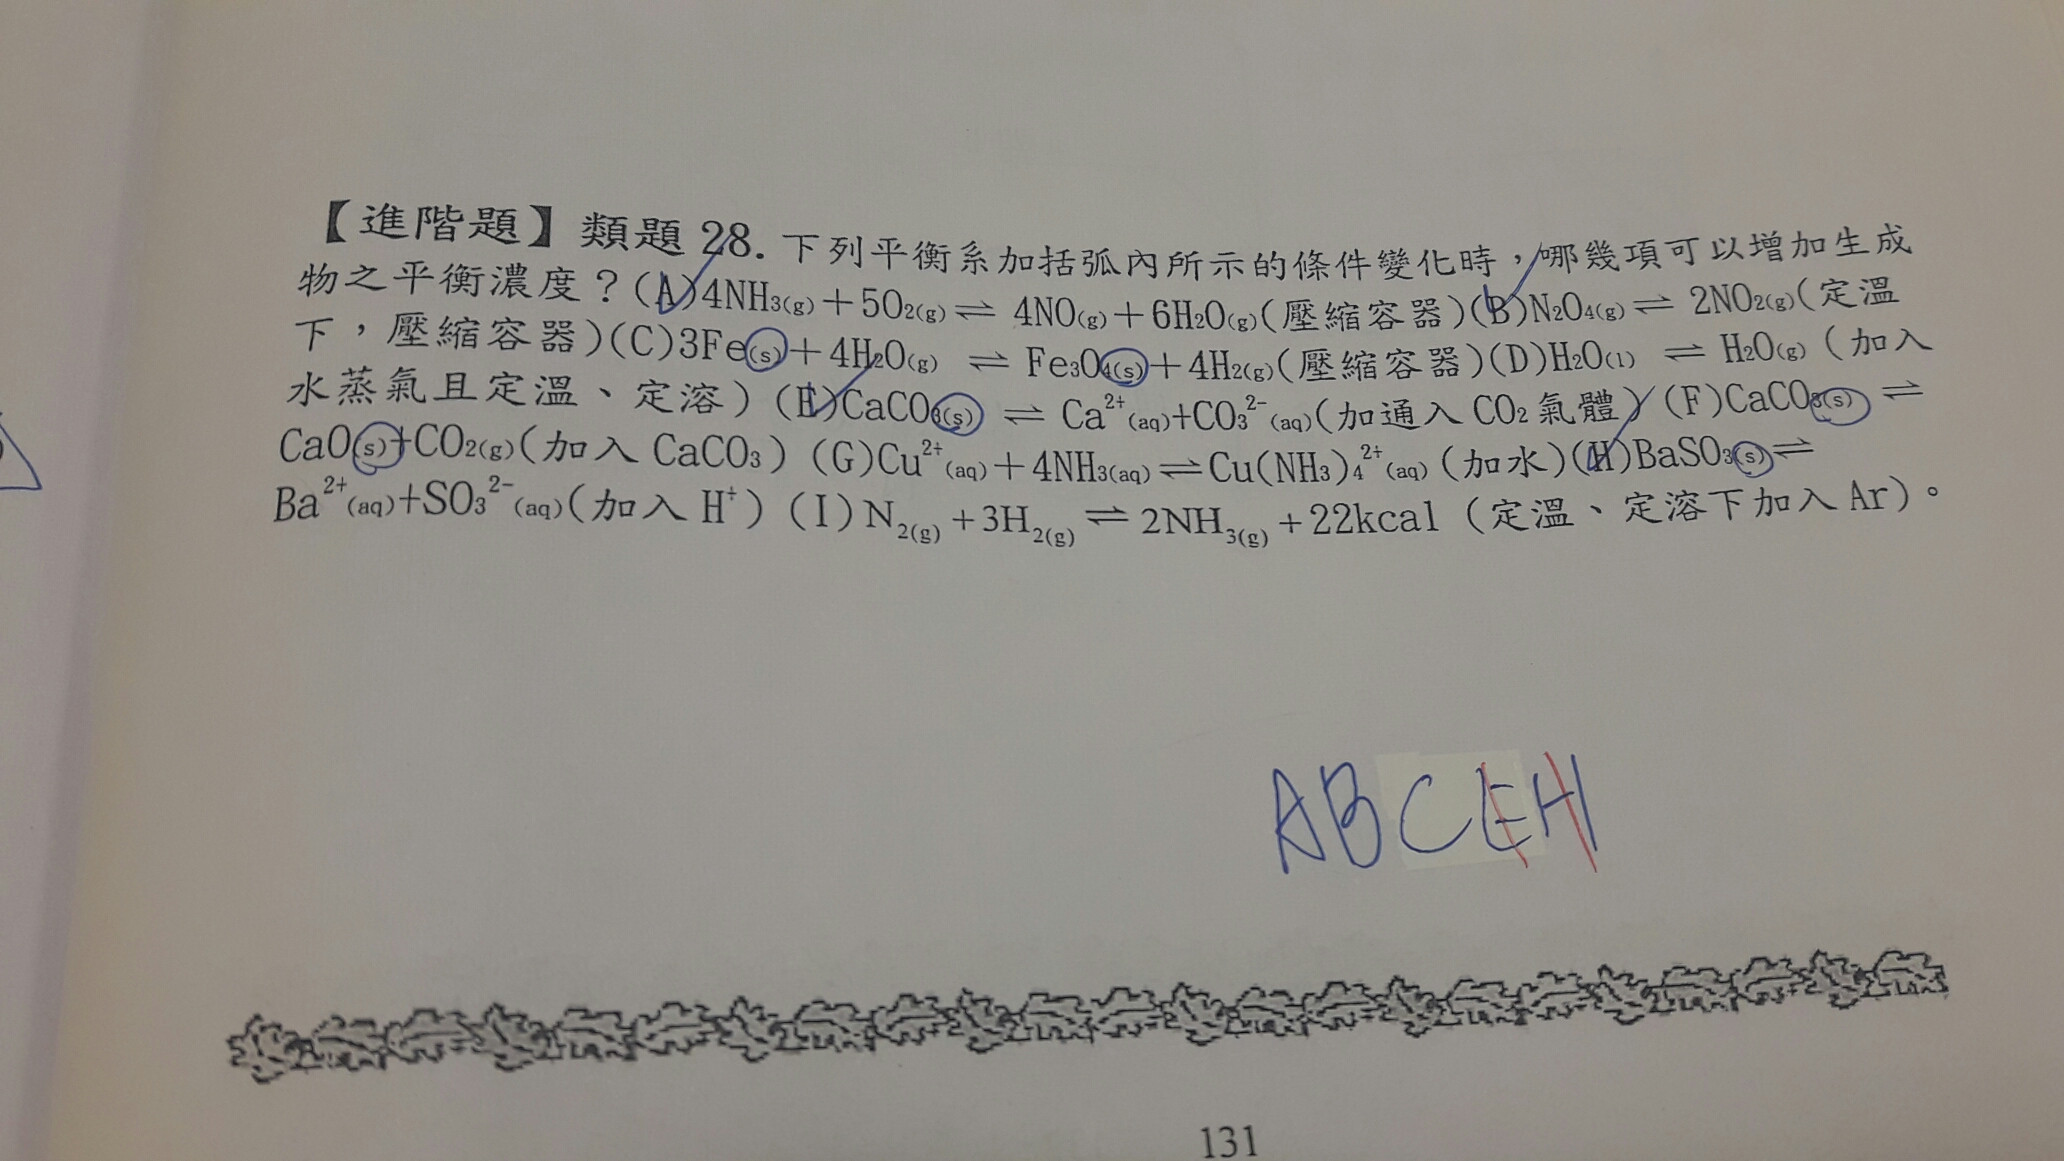 【進階題】類題 28. 下列平衡系加括弧內所示的條件變化時，哪幾項可以增加生成
物之平衡濃度？(A)4NH₃(g)＋5O₂(g)⇌ 4NO(g)＋6H₂O(g)(壓縮容器)(B)N₂O₄(g)⇌ 2NO₂(g)(定溫
下，壓縮容器)(C)3Fe(s)＋4H₂O(g) ⇌ Fe₃O₄(s)＋4H₂(g)(壓縮容器)(D)H₂O(l) ⇌ H₂O(g)（加入
水蒸氣且定溫、定溶）(E)CaCO₃(s) ⇌ Ca²⁺(aq)+CO₃²⁻(aq)(加通入 CO₂ 氣體) (F)CaCO₃(s) ⇌
CaO(s)+CO₂(g)(加入 CaCO₃) (G)Cu²⁺(aq)＋4NH₃(aq)⇌Cu(NH₃)₄²⁺(aq) (加水)(H)BaSO₃(s)⇌
Ba²⁺(aq)+SO₃²⁻(aq)(加入 H⁺) (I) N₂(g) +3H₂(g) ⇌ 2NH₃(g) +22kcal（定溫、定溶下加入 Ar）。
ABCEH
131